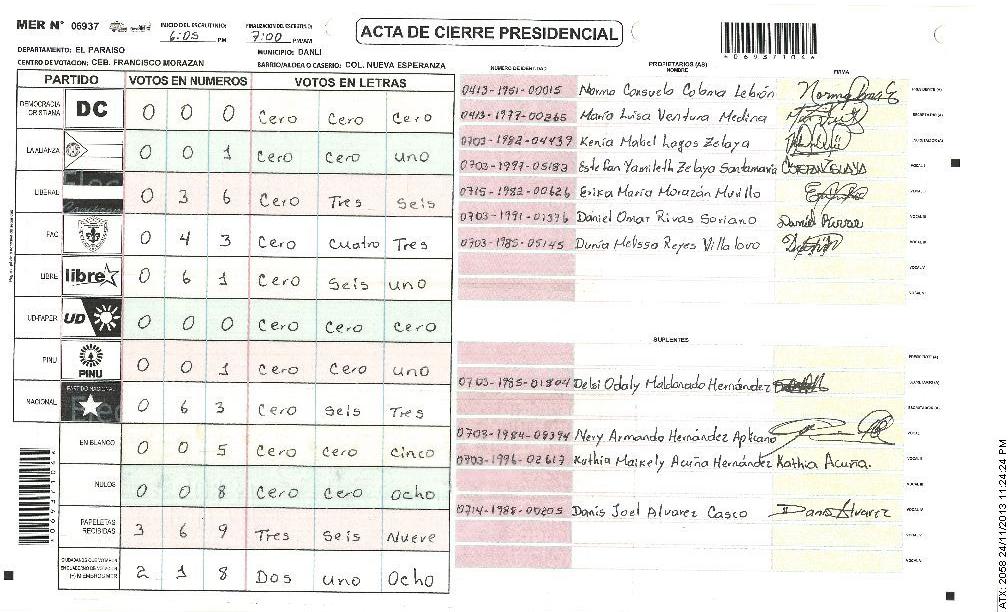 MER N° 06937 INICIO DEL ESCRUTINIO: 6:05 PM FINALIZACION DEL ESCRUTINIO: 7:00 PM/AM
ACTA DE CIERRE PRESIDENCIAL
DEPARTAMENTO: EL PARAISO MUNICIPIO: DANLI
CENTRO DE VOTACION: CEB. FRANCISCO MORAZAN BARRIO/ALDEA O CASERIO: COL. NUEVA ESPERANZA
PARTIDO VOTOS EN NUMEROS VOTOS EN LETRAS
DEMOCRACIA CRISTIANA DC 0 0 0 Cero Cero Cero
LA ALIANZA 0 0 1 Cero Cero uno
LIBERAL 0 3 6 Cero Tres Seis
PAC 0 4 3 Cero cuatro Tres
LIBRE libre 0 6 1 Cero Seis uno
UD-FAPER UD 0 0 0 Cero Cero Cero
PINU PINU 0 0 1 Cero Cero uno
NACIONAL PARTIDO NACIONAL 0 6 3 Cero Seis Tres
EN BLANCO 0 0 5 Cero Cero cinco
NULOS 0 0 8 Cero Cero Ocho
PAPELETAS RECIBIDAS 3 6 9 Tres Seis Nueve
2 1 8 Dos uno Ocho
NUMERO DE IDENTIDAD PROPIETARIOS (AS) NOMBRE FIRMA
0413-1961-00015 Norma Consuelo Coloma Lebrón
0413-1977-00265 María Luisa Ventura Medina
0703-1982-04439 Kenia Mabel Lagos Zelaya
0703-1997-05183 Estefan Yamileth Zelaya Santamaria
0715-1982-00626 Erika María Morazán Murillo
0703-1991-01376 Daniel Omar Rivas Soriano
0703-1985-05145 Dunia Melissa Reyes Villalovo
SUPLENTES
0703-1985-01804 Delsi Odaly Maldonado Hernández
0703-1984-03394 Nery Armando Hernández
0703-1996-02617 Kathia Maikely Acuña Hernández Kathia Acuña.
0714-1988-00205 Danis Joel Alvarez Casco Danis Alvarez
*06937104*
ATX: 2058 24/11/2013 11:24:24 PM